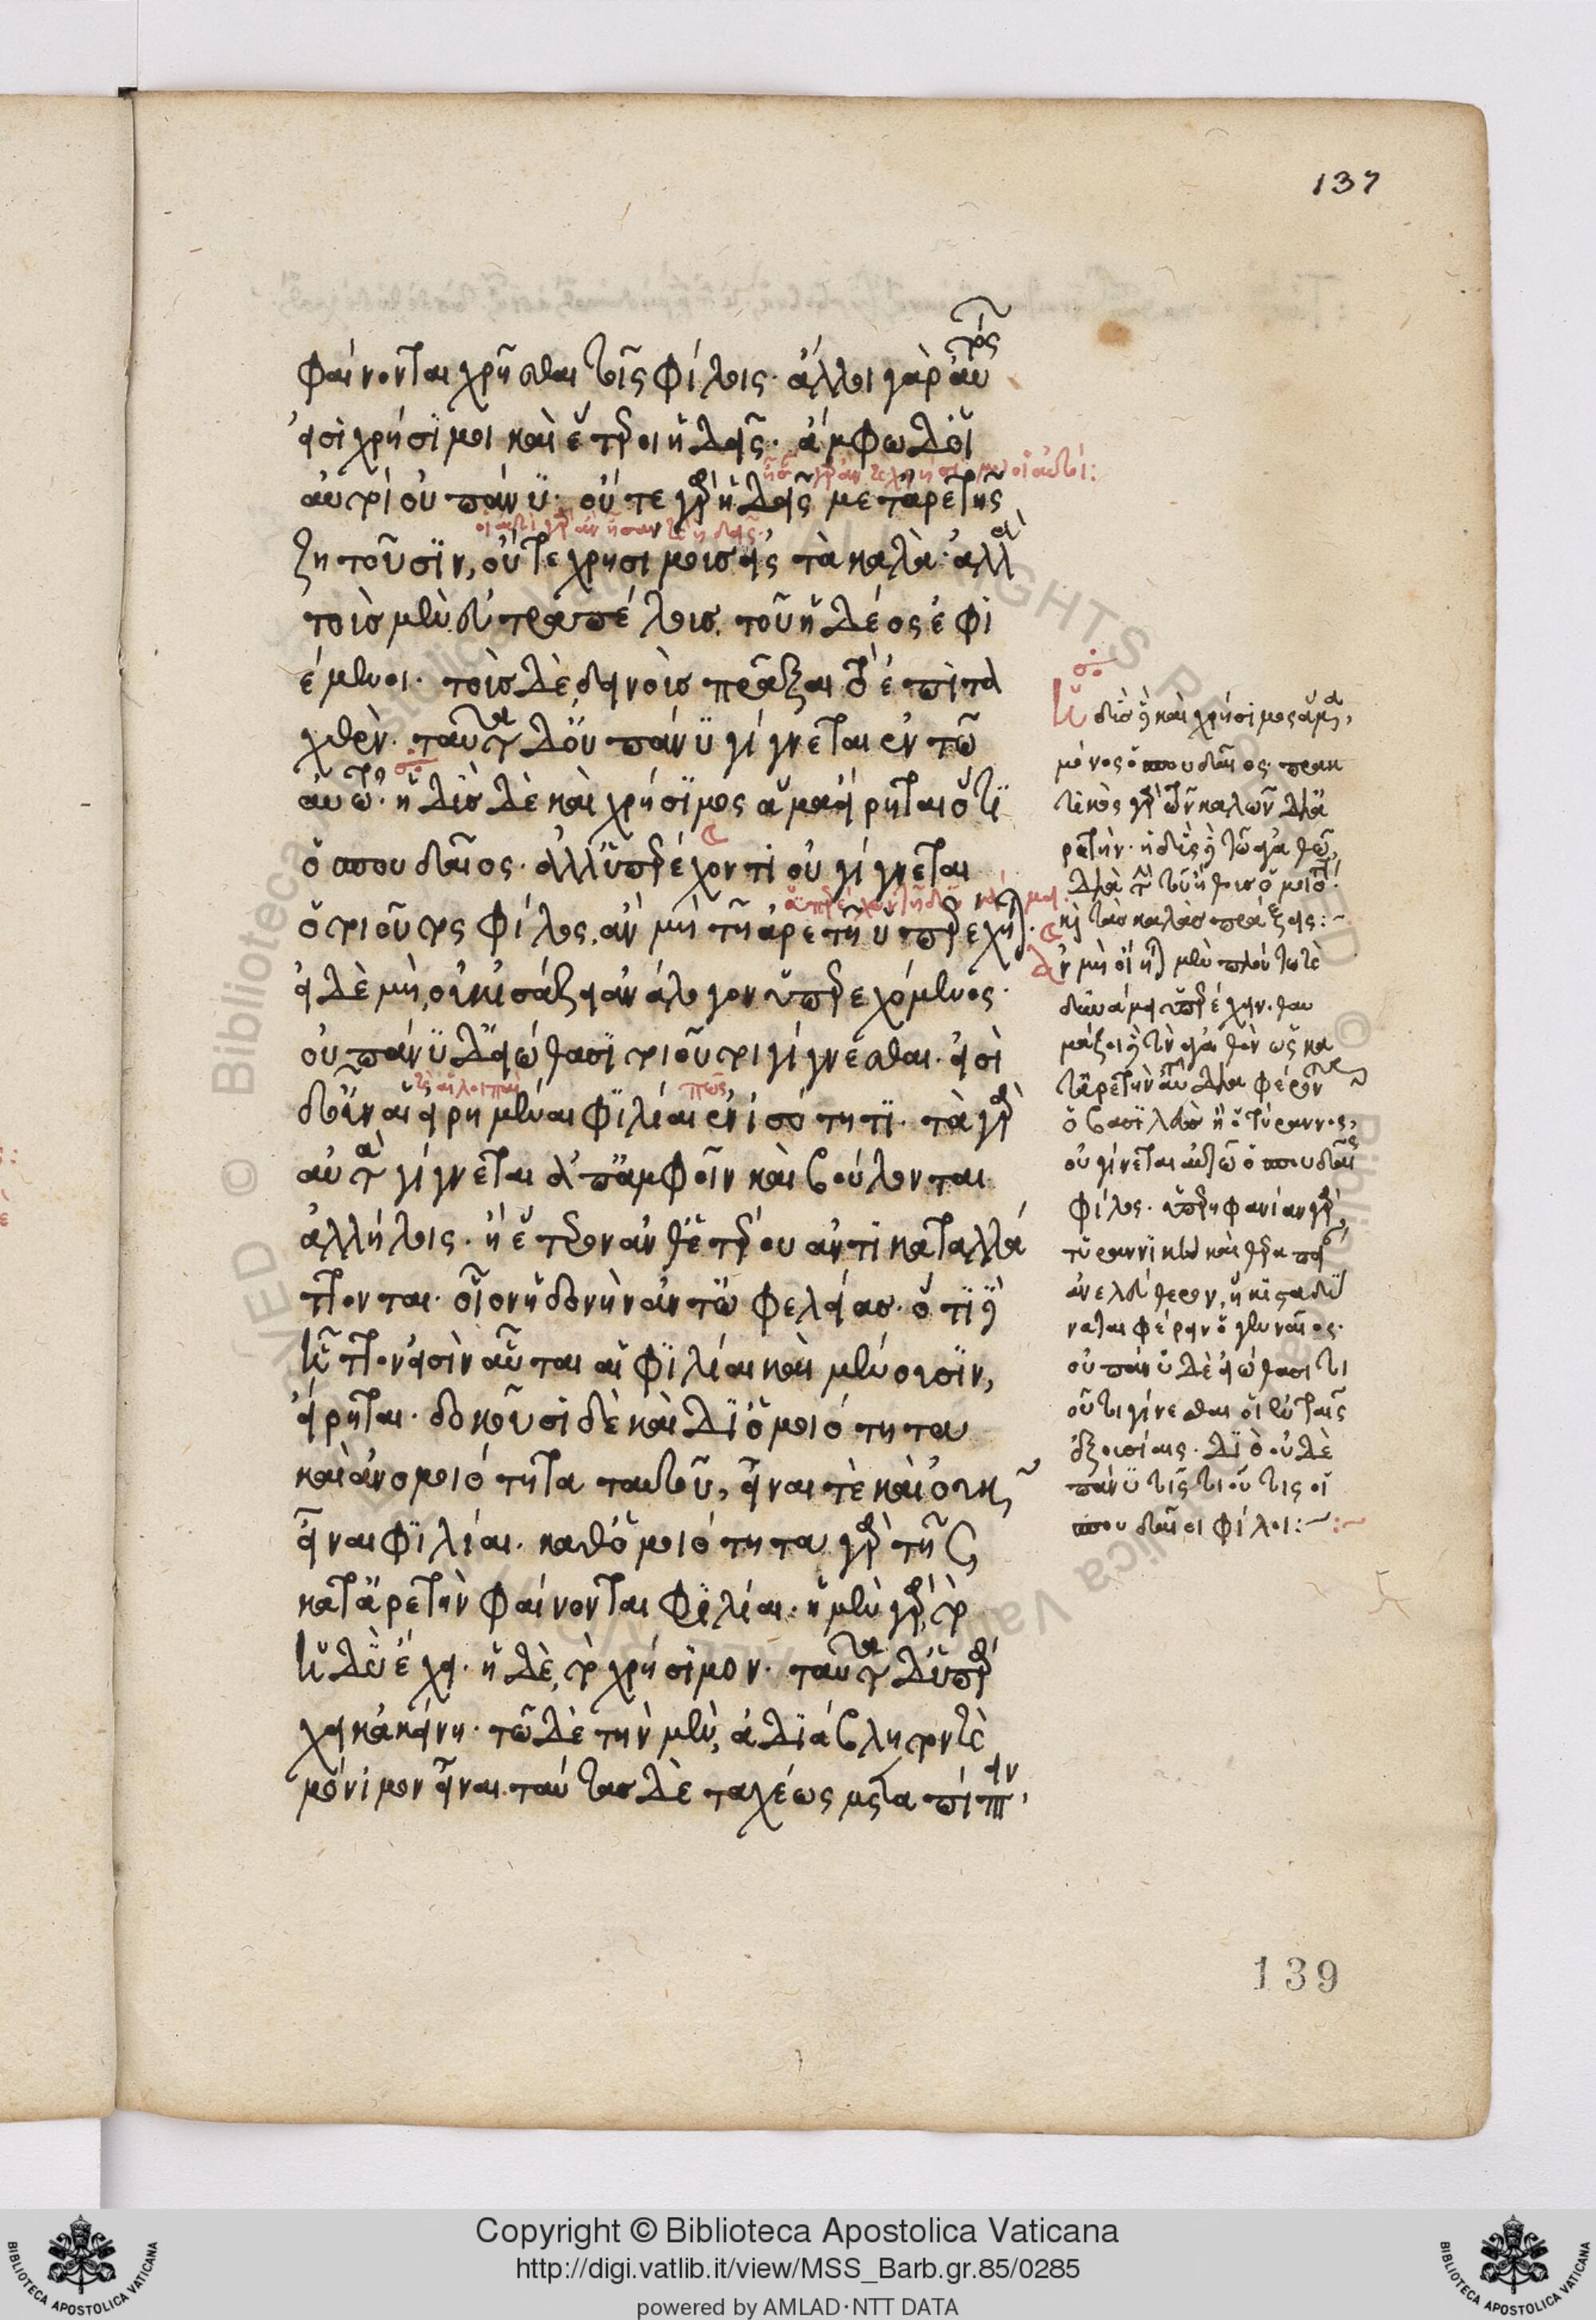 137
φαίνονται χρῆσθαι τοῖς φίλοις· ἄλλοι γὰρ αὐτοῖς
εἰσὶ χρήσιμοι καὶ ἕτεροι ἡδεῖς· ἄμφω δ' οἱ
αὐτοὶ οὐ πάνυ· οὔτε γὰρ ἡδεῖς μετ' ἀρετῆς
ζητοῦσιν, οὔτε χρησίμους εἰς τὰ καλά· ἀλλὰ
τοὺς μὲν εὐτραπέλους, τοῦ ἡδέος ἐφι
έμενοι· τοὺς δὲ δεινοὺς πρᾶξαι τὸ ἐπιτα
χθέν· ταῦτα δ' οὐ πάνυ γίγνεται ἐν τῷ
αὐτῷ· ἡδὺς δὲ καὶ χρήσιμος ἅμα εἴρηται ὅτι
ὁ σπουδαῖος· ἀλλ' ὑπερέχοντι οὐ γίγνεται
ὁ τοιοῦτος φίλος, ἂν μὴ τῇ ἀρετῇ ὑπερέχηται·
εἰ δὲ μή, οὐκ ἰσάζει ἀνάλογον ὑπερεχόμενος·
οὐ πάνυ δ' εἰώθασι τοιοῦτοι γίγνεσθαι· εἰσὶ
δ' οὖν αἱ εἰρημέναι φιλίαι ἐν ἰσότητι· τὰ γὰρ
αὐτὰ γίγνεται ἀπ' ἀμφοῖν καὶ βούλονται
ἀλλήλοις· ἢ ἕτερον ἀνθ' ἑτέρου ἀντικαταλλά
ττονται· οἷον ἡδονὴν ἀντ' ὠφελείας· ὅτι καὶ
ἧττον εἰσὶν αὗται αἱ φιλίαι καὶ μένουσιν,
εἴρηται· δοκοῦσι δὲ καὶ δι' ὁμοιότητα
καὶ ἀνομοιότητα ταυτοῦ, εἶναί τε καὶ οὐκ
εἶναι φιλίαι· καθ' ὁμοιότητα γὰρ τῆς
κατ' ἀρετὴν φαίνονται φιλίαι· ἡ μὲν γὰρ τὸ
ἡδὺ ἔχει· ἡ δὲ, τὸ χρήσιμον· ταῦτα δ' ὑπάρ
χει κἀκείνῃ· τῷ δὲ τὴν μὲν, ἀδιάβλητόν τε
μόνιμον εἶναι· ταύτας δὲ ταχέως μεταπίπτειν,
ἡδὺς καὶ χρήσιμος ἅμα,
μόνος ὁ σπουδαῖος· πρακ
τικὸς γὰρ τῶν καλῶν δι' ἀ
ρετήν· ἡδὺς καὶ τῷ ἀγαθῷ,
διὰ τὸ τοῦ ἤθους ὅμοιον
καὶ τὰς καλὰς πράξεις:~
ἂν μὴ οἵηται μὲν πλούτῳ τε
δυνάμει ὑπερέχειν· θαυ
μάζοι καὶ τὸν ἀγαθὸν ὡς κα
τ' ἀρετὴν αὐτοῦ διαφέροντα
ὁ βασιλεὺς ἢ ὁ τύραννος,
οὐ γίνεται αὐτῷ ὁ σπουδαῖος
φίλος· ὑπερηφανίαν γὰρ
τυραννικὴν καὶ θεραπεί
ἀνελεύθερον, ἥκιστα δύ
ναται φέρειν ὁ γενναῖος·
οὐ πάνυ δὲ εἰώθασι τοι
οῦτοι γίνεσθαι οἱ ἐν ταῖς
ἐξουσίαις· διὸ οὐδὲ
πάνυ τοῖς τοιούτοις οἱ
σπουδαῖοι φίλοι:~
139
Copyright © Biblioteca Apostolica Vaticana
http://digi.vatlib.it/view/MSS_Barb.gr.85/0285
powered by AMLAD·NTT DATA